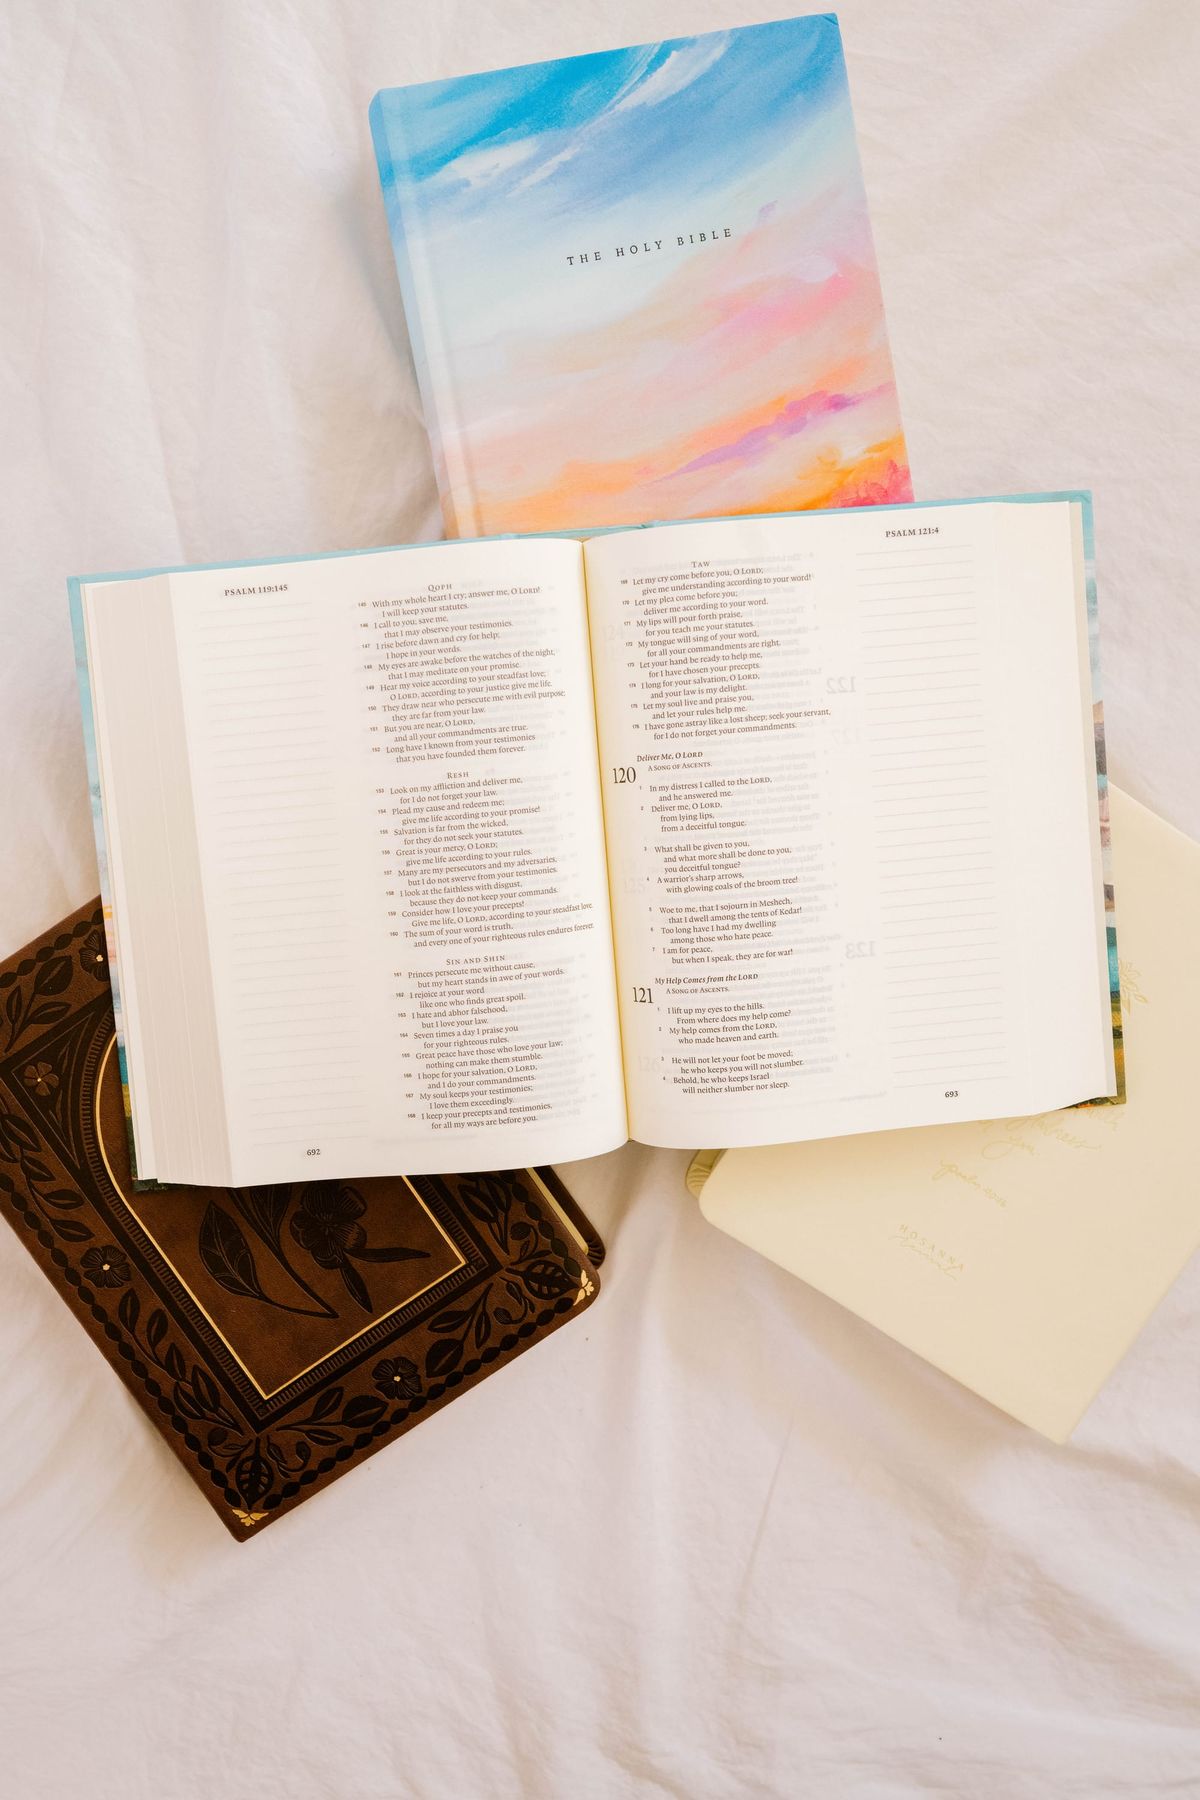 THE HOLY BIBLE
PSALM 119:145
QOPH
145 With my whole heart I cry; answer me, O LORD!
I will keep your statutes.
146 I call to you; save me,
that I may observe your testimonies.
147 I rise before dawn and cry for help;
I hope in your words.
148 My eyes are awake before the watches of the night,
that I may meditate on your promise.
149 Hear my voice according to your steadfast love;
O LORD, according to your justice give me life.
150 They draw near who persecute me with evil purpose;
they are far from your law.
151 But you are near, O LORD,
and all your commandments are true.
152 Long have I known from your testimonies
that you have founded them forever.
RESH
153 Look on my affliction and deliver me,
for I do not forget your law.
154 Plead my cause and redeem me;
give me life according to your promise!
155 Salvation is far from the wicked,
for they do not seek your statutes.
156 Great is your mercy, O LORD;
give me life according to your rules.
157 Many are my persecutors and my adversaries,
but I do not swerve from your testimonies.
158 I look at the faithless with disgust,
because they do not keep your commands.
159 Consider how I love your precepts!
Give me life, O LORD, according to your steadfast love.
160 The sum of your word is truth,
and every one of your righteous rules endures forever.
SIN AND SHIN
161 Princes persecute me without cause,
but my heart stands in awe of your words.
162 I rejoice at your word
like one who finds great spoil.
163 I hate and abhor falsehood,
but I love your law.
164 Seven times a day I praise you
for your righteous rules.
165 Great peace have those who love your law;
nothing can make them stumble.
166 I hope for your salvation, O LORD,
and I do your commandments.
167 My soul keeps your testimonies;
I love them exceedingly.
168 I keep your precepts and testimonies,
for all my ways are before you.
692
PSALM 121:4
TAW
169 Let my cry come before you, O LORD;
give me understanding according to your word!
170 Let my plea come before you;
deliver me according to your word.
171 My lips will pour forth praise,
for you teach me your statutes.
172 My tongue will sing of your word,
for all your commandments are right.
173 Let your hand be ready to help me,
for I have chosen your precepts.
174 I long for your salvation, O LORD,
and your law is my delight.
175 Let my soul live and praise you,
and let your rules help me.
176 I have gone astray like a lost sheep; seek your servant,
for I do not forget your commandments.
Deliver Me, O LORD
120 A SONG OF ASCENTS.
1 In my distress I called to the LORD,
and he answered me.
2 Deliver me, O LORD,
from lying lips,
from a deceitful tongue.
3 What shall be given to you,
and what more shall be done to you,
you deceitful tongue?
4 A warrior's sharp arrows,
with glowing coals of the broom tree!
5 Woe to me, that I sojourn in Meshech,
that I dwell among the tents of Kedar!
6 Too long have I had my dwelling
among those who hate peace.
7 I am for peace,
but when I speak, they are for war!
My Help Comes from the LORD
121 A SONG OF ASCENTS.
1 I lift up my eyes to the hills.
From where does my help come?
2 My help comes from the LORD,
who made heaven and earth.
3 He will not let your foot be moved;
he who keeps you will not slumber.
4 Behold, he who keeps Israel
will neither slumber nor sleep.
693
gladness
you.
HOSANNA
Revival